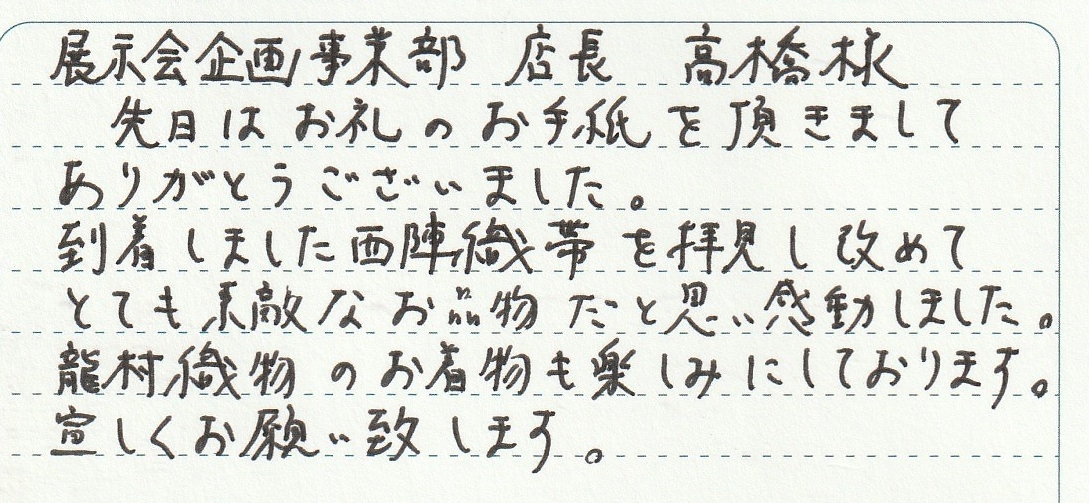 展示会企画事業部 店長 高橋様
先日はお礼のお手紙を頂きまして
ありがとうございました。
到着しました西陣織帯を拝見し改めて
とても素敵なお品物だと思い感動しました。
龍村織物のお着物も楽しみにしております。
宜しくお願い致します。